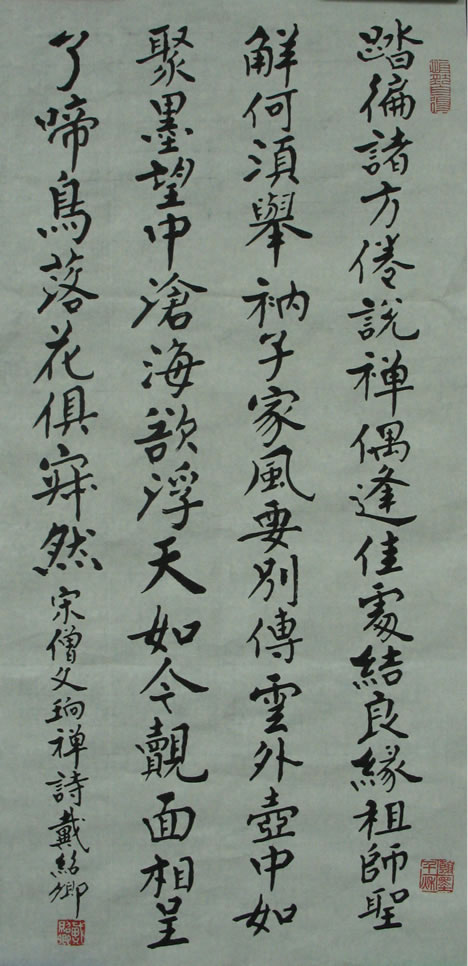 踏徧諸方倦說禅偶逢佳處結良緣祖師聖
解何須舉衲子家風要別傳雲外壺中如
聚墨望中滄海欲浮天如今覿面相呈
了啼鳥落花俱寂然宋僧文珦禅詩戴紹卿